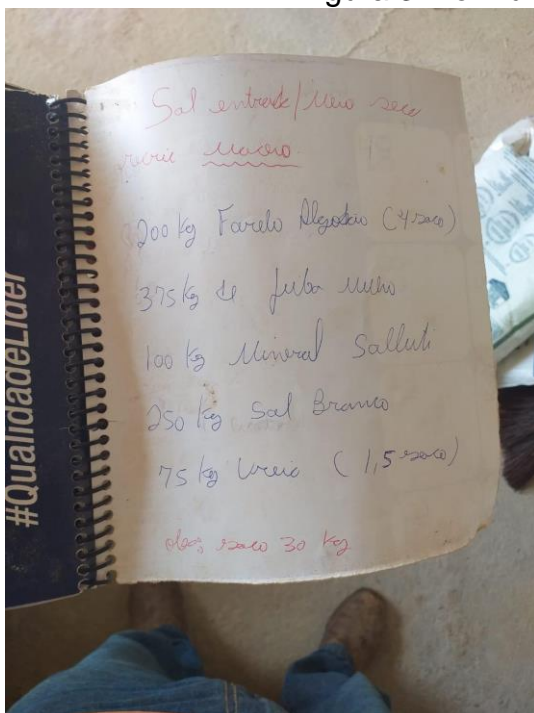 #QualidadeLíder
Sal entrada/Meio seca
200 kg Farelo Algodão (4 saco)
375 kg de fubá milho
100 kg Mineral Salluti
250 kg Sal Branco
75 kg Ureia (1,5 saco)
obs, saco 30 kg